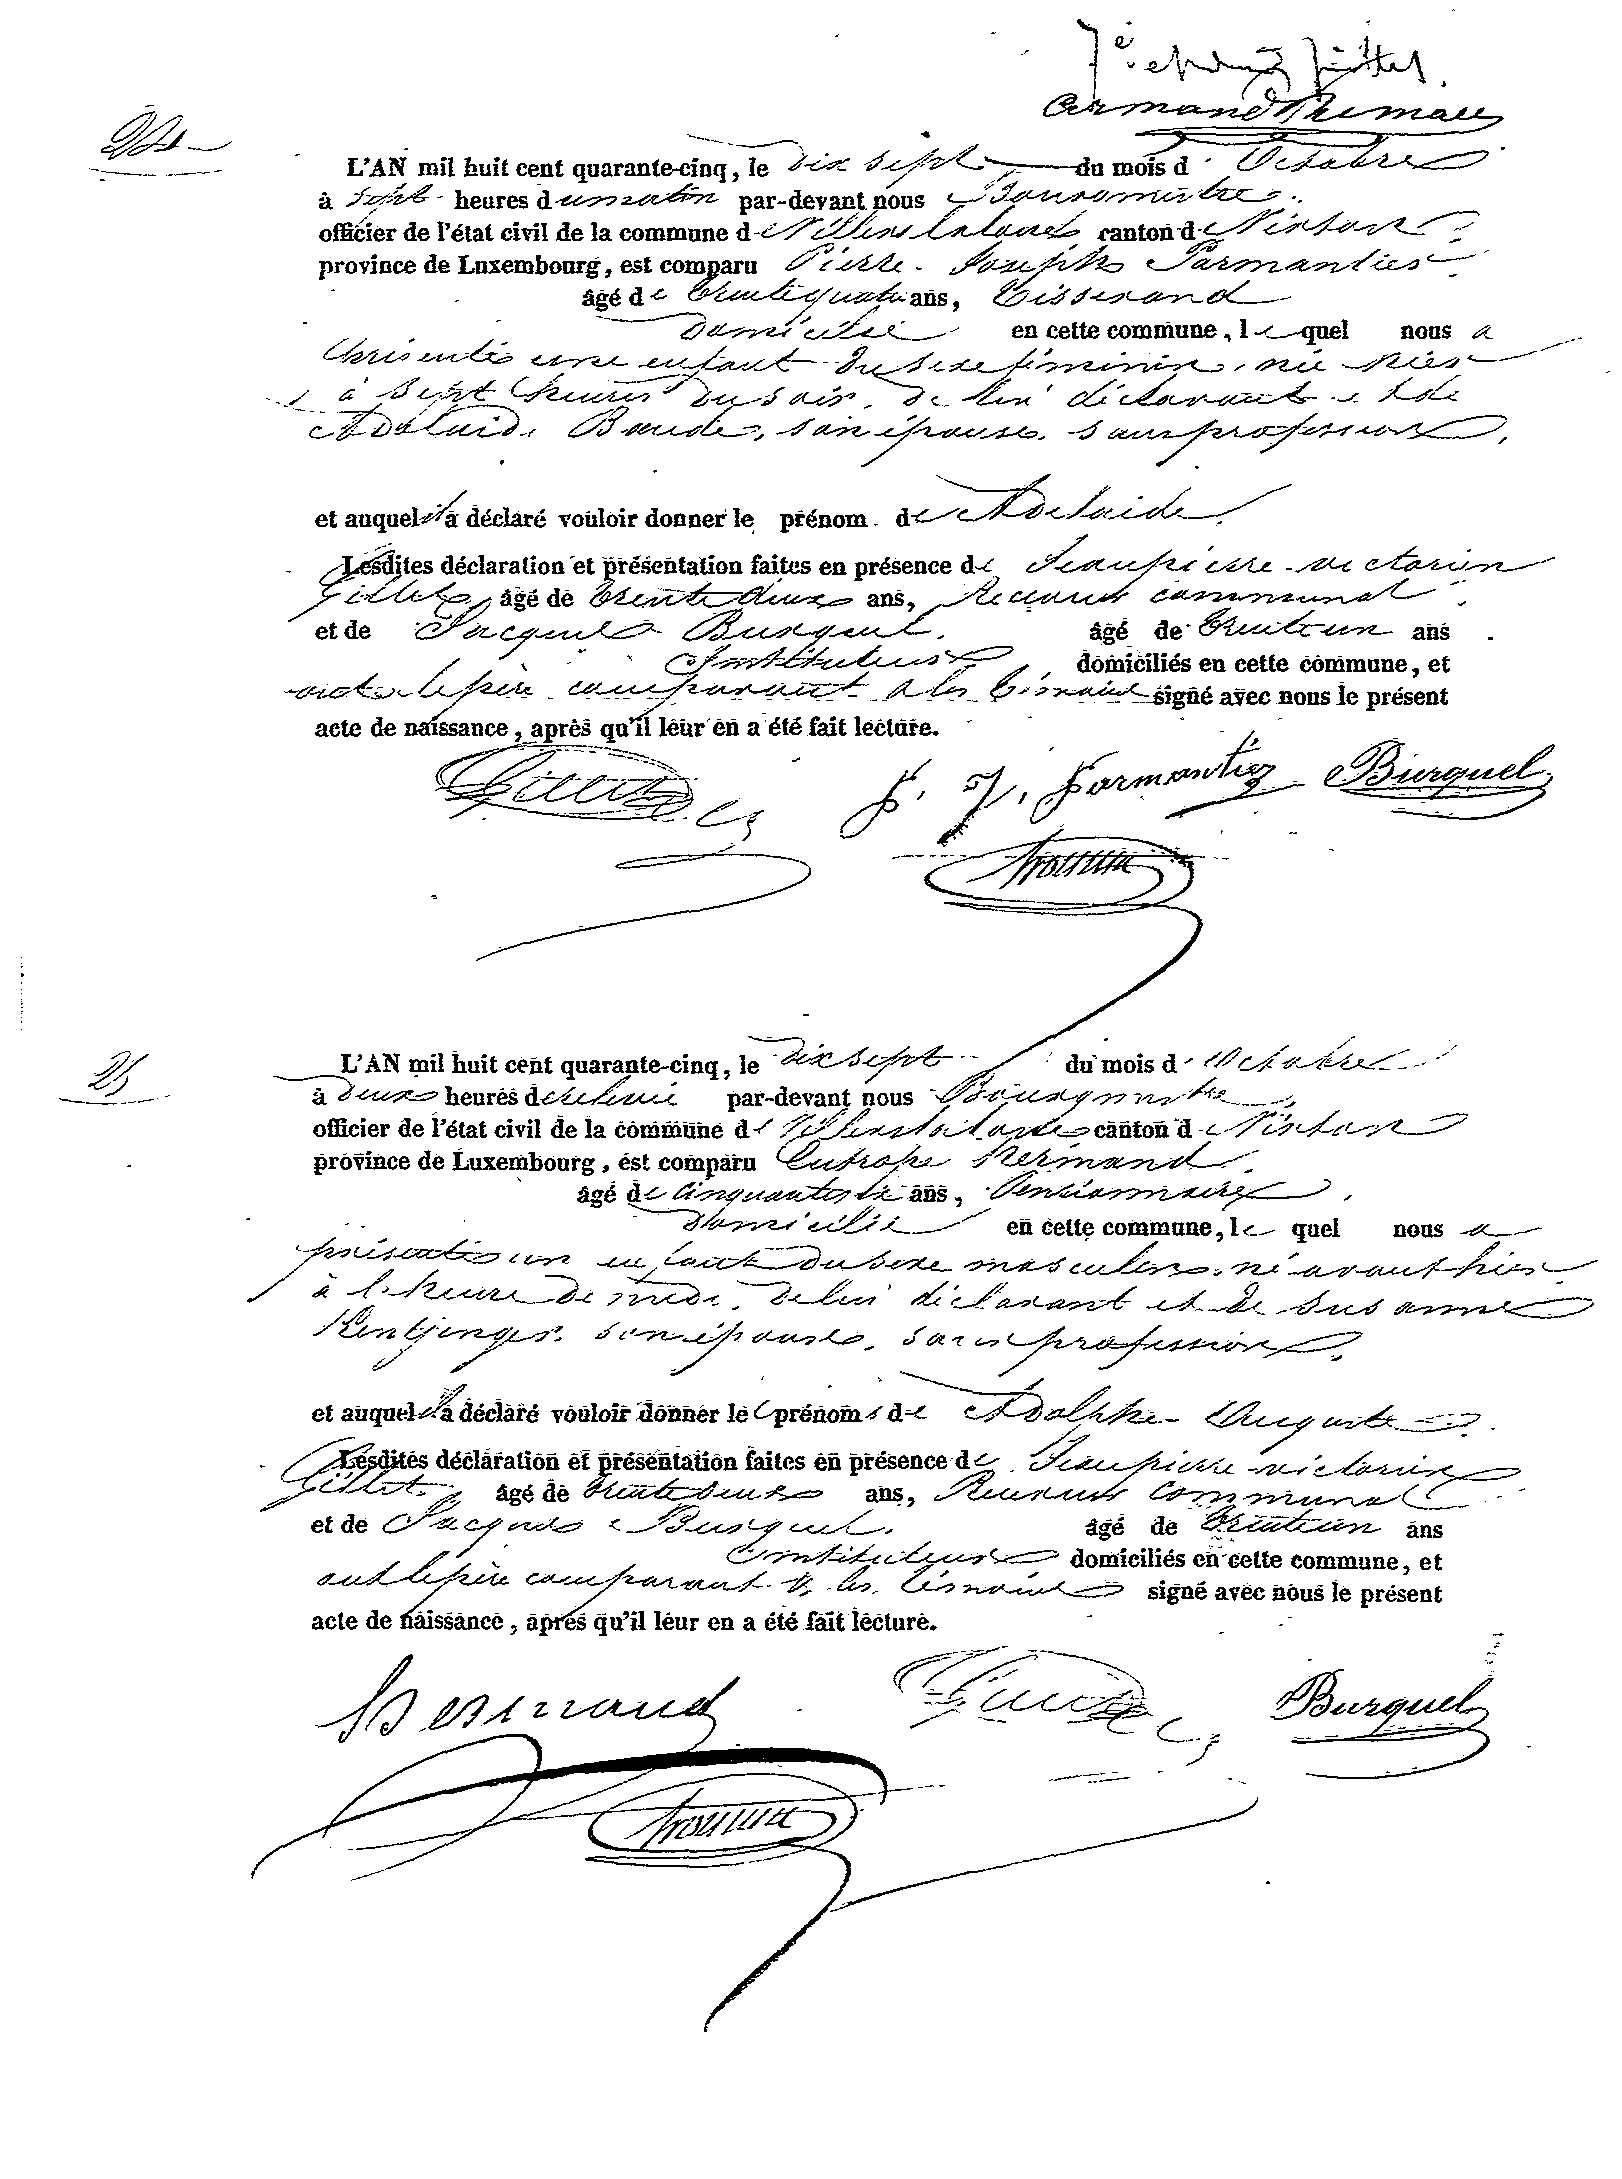 Armand Thémans
24
L'AN mil huit cent quarante-cinq, le dix sept du mois d' Octobre
à sept heures du matin par-devant nous Bourgmestre
officier de l'état civil de la commune de Villers la loue canton de Virton
province de Luxembourg, est comparu Pierre Joseph Parmantier
âgé de trente quatre ans, Tisserand
domicilié en cette commune, le quel nous a
présenté une enfant du sexe féminin, née hier
à sept heures du soir, de lui déclarant et de
Adélaïde Baude, son épouse, sans profession,
et auquel il a déclaré vouloir donner le prénom de Adelaide.
Lesdites déclaration et présentation faites en présence de Jean pierre victorien
Gillet, âgé de trente deux ans, Receveur communal
et de Jacques Burquel. âgé de trente un ans
Instituteur domiciliés en cette commune, et
ont le père comparant & les témoins signé avec nous le présent
acte de naissance, après qu'il leur en a été fait lecture.
Gillet P. J. Parmantier Burquel
25
L'AN mil huit cent quarante-cinq, le dix sept du mois d' Octobre
à deux heures de relevée par-devant nous Bourgmestre
officier de l'état civil de la commune de Villers la loue canton de Virton
province de Luxembourg, est comparu Eutrope Hermand
âgé de cinquante six ans, Pensionnaire
domicilié en cette commune, le quel nous a
présenté un enfant du sexe masculin, né avant hier
à l'heure de midi, de lui déclarant et de Susanne
Kentjenger, son épouse, sans profession,
et auquel il a déclaré vouloir donner les prénoms de Adolphe Auguste
Lesdites déclaration et présentation faites en présence de Jean pierre victorien
Gillet, âgé de trente deux ans, Receveur communal
et de Jacques Burquel. âgé de trente un ans
instituteur domiciliés en cette commune, et
ont le père comparant & les témoins signé avec nous le présent
acte de naissance, après qu'il leur en a été fait lecture.
Hermand Gillet Burquel